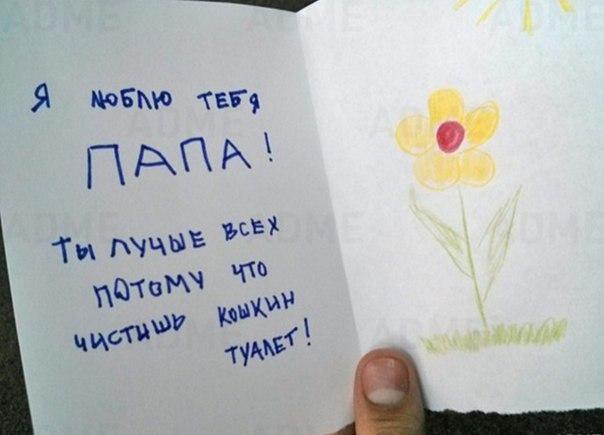 Я люблю тебя
ПАПА!
Ты лучые всех
потому что
чистишь кошкин
туалет!
ADME
ADME
ADME
ADME
ADME
ADME
ADME